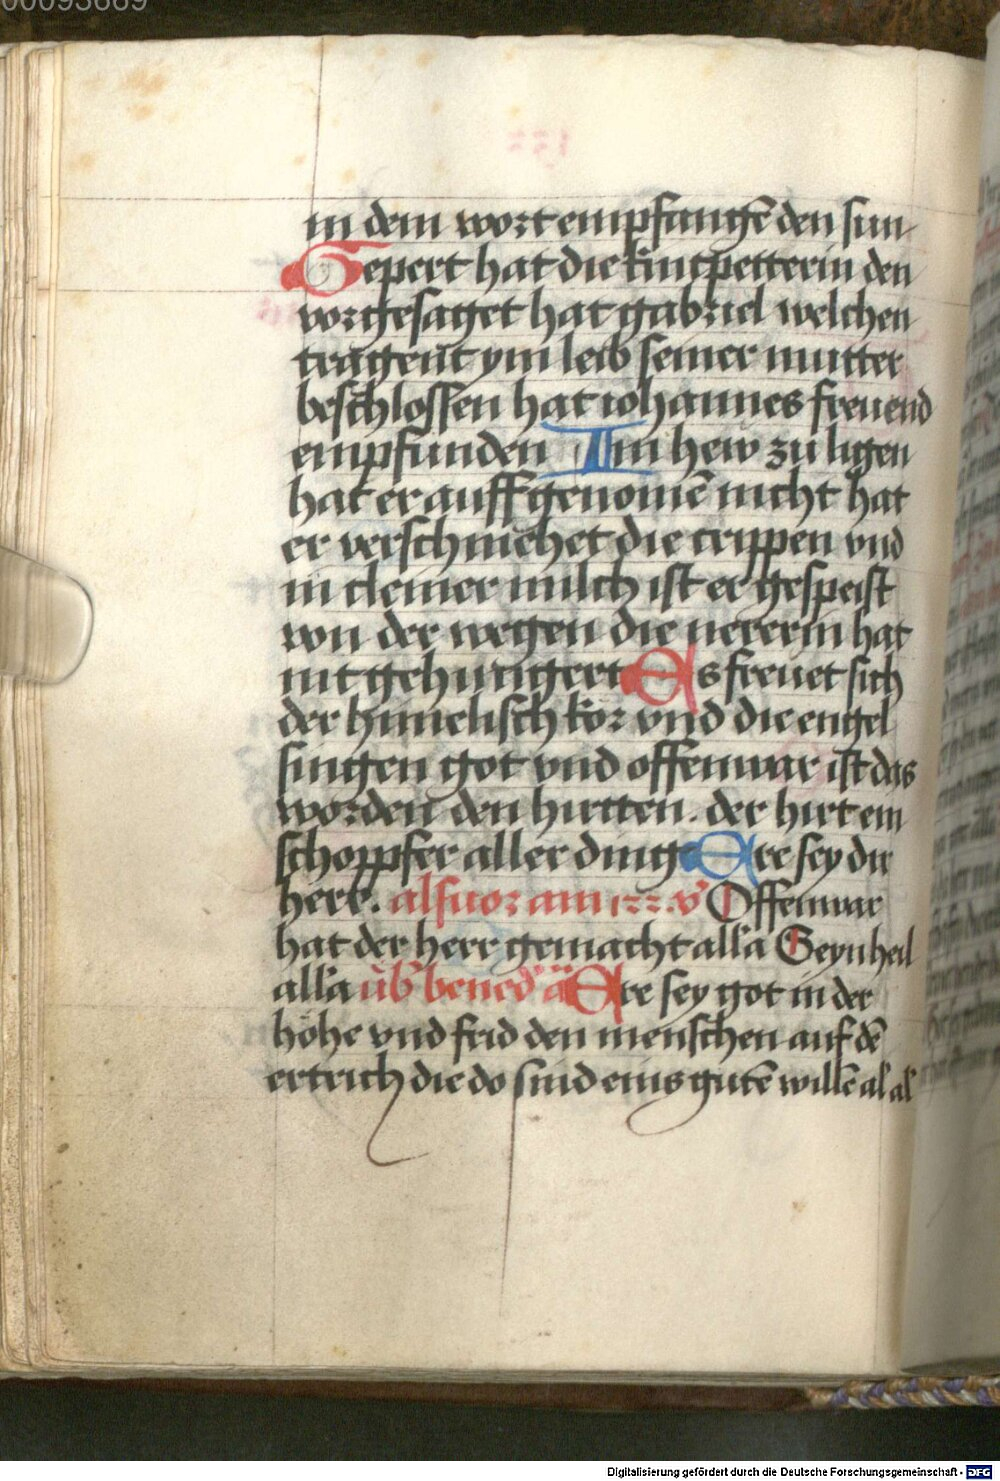 00093669
in dem wort empfangē den sun
Gepert hat die kintpetterin den
vorgesaget hat gabriel welchen
tragent ym leib seiner mutter
beschlossen hat iohannes freuend
empfunden Im hew zu ligen
hat er auff genomē nicht hat
er verschmehet die crippen vnd
in cleiner milch ist er gespeist
von der wegen die nererin hat
nit gehungert Es freuet sich
der himelisch kor vnd die engel
singen got vnd offenwar ist das
worden den hirtten. der hirt ein
schoppfer aller ding Ere sey dir
herr. als uor am 122. v̊ Offenwar
hat der herr gemacht all'a Seyn heil
all'a üb' bened' ā Ere sey got in der
höhe vnd frid den menschen auf dē
ertrich die do sind eins gutē willē al' al'
Digitalisierung gefördert durch die Deutsche Forschungsgemeinschaft - DFG